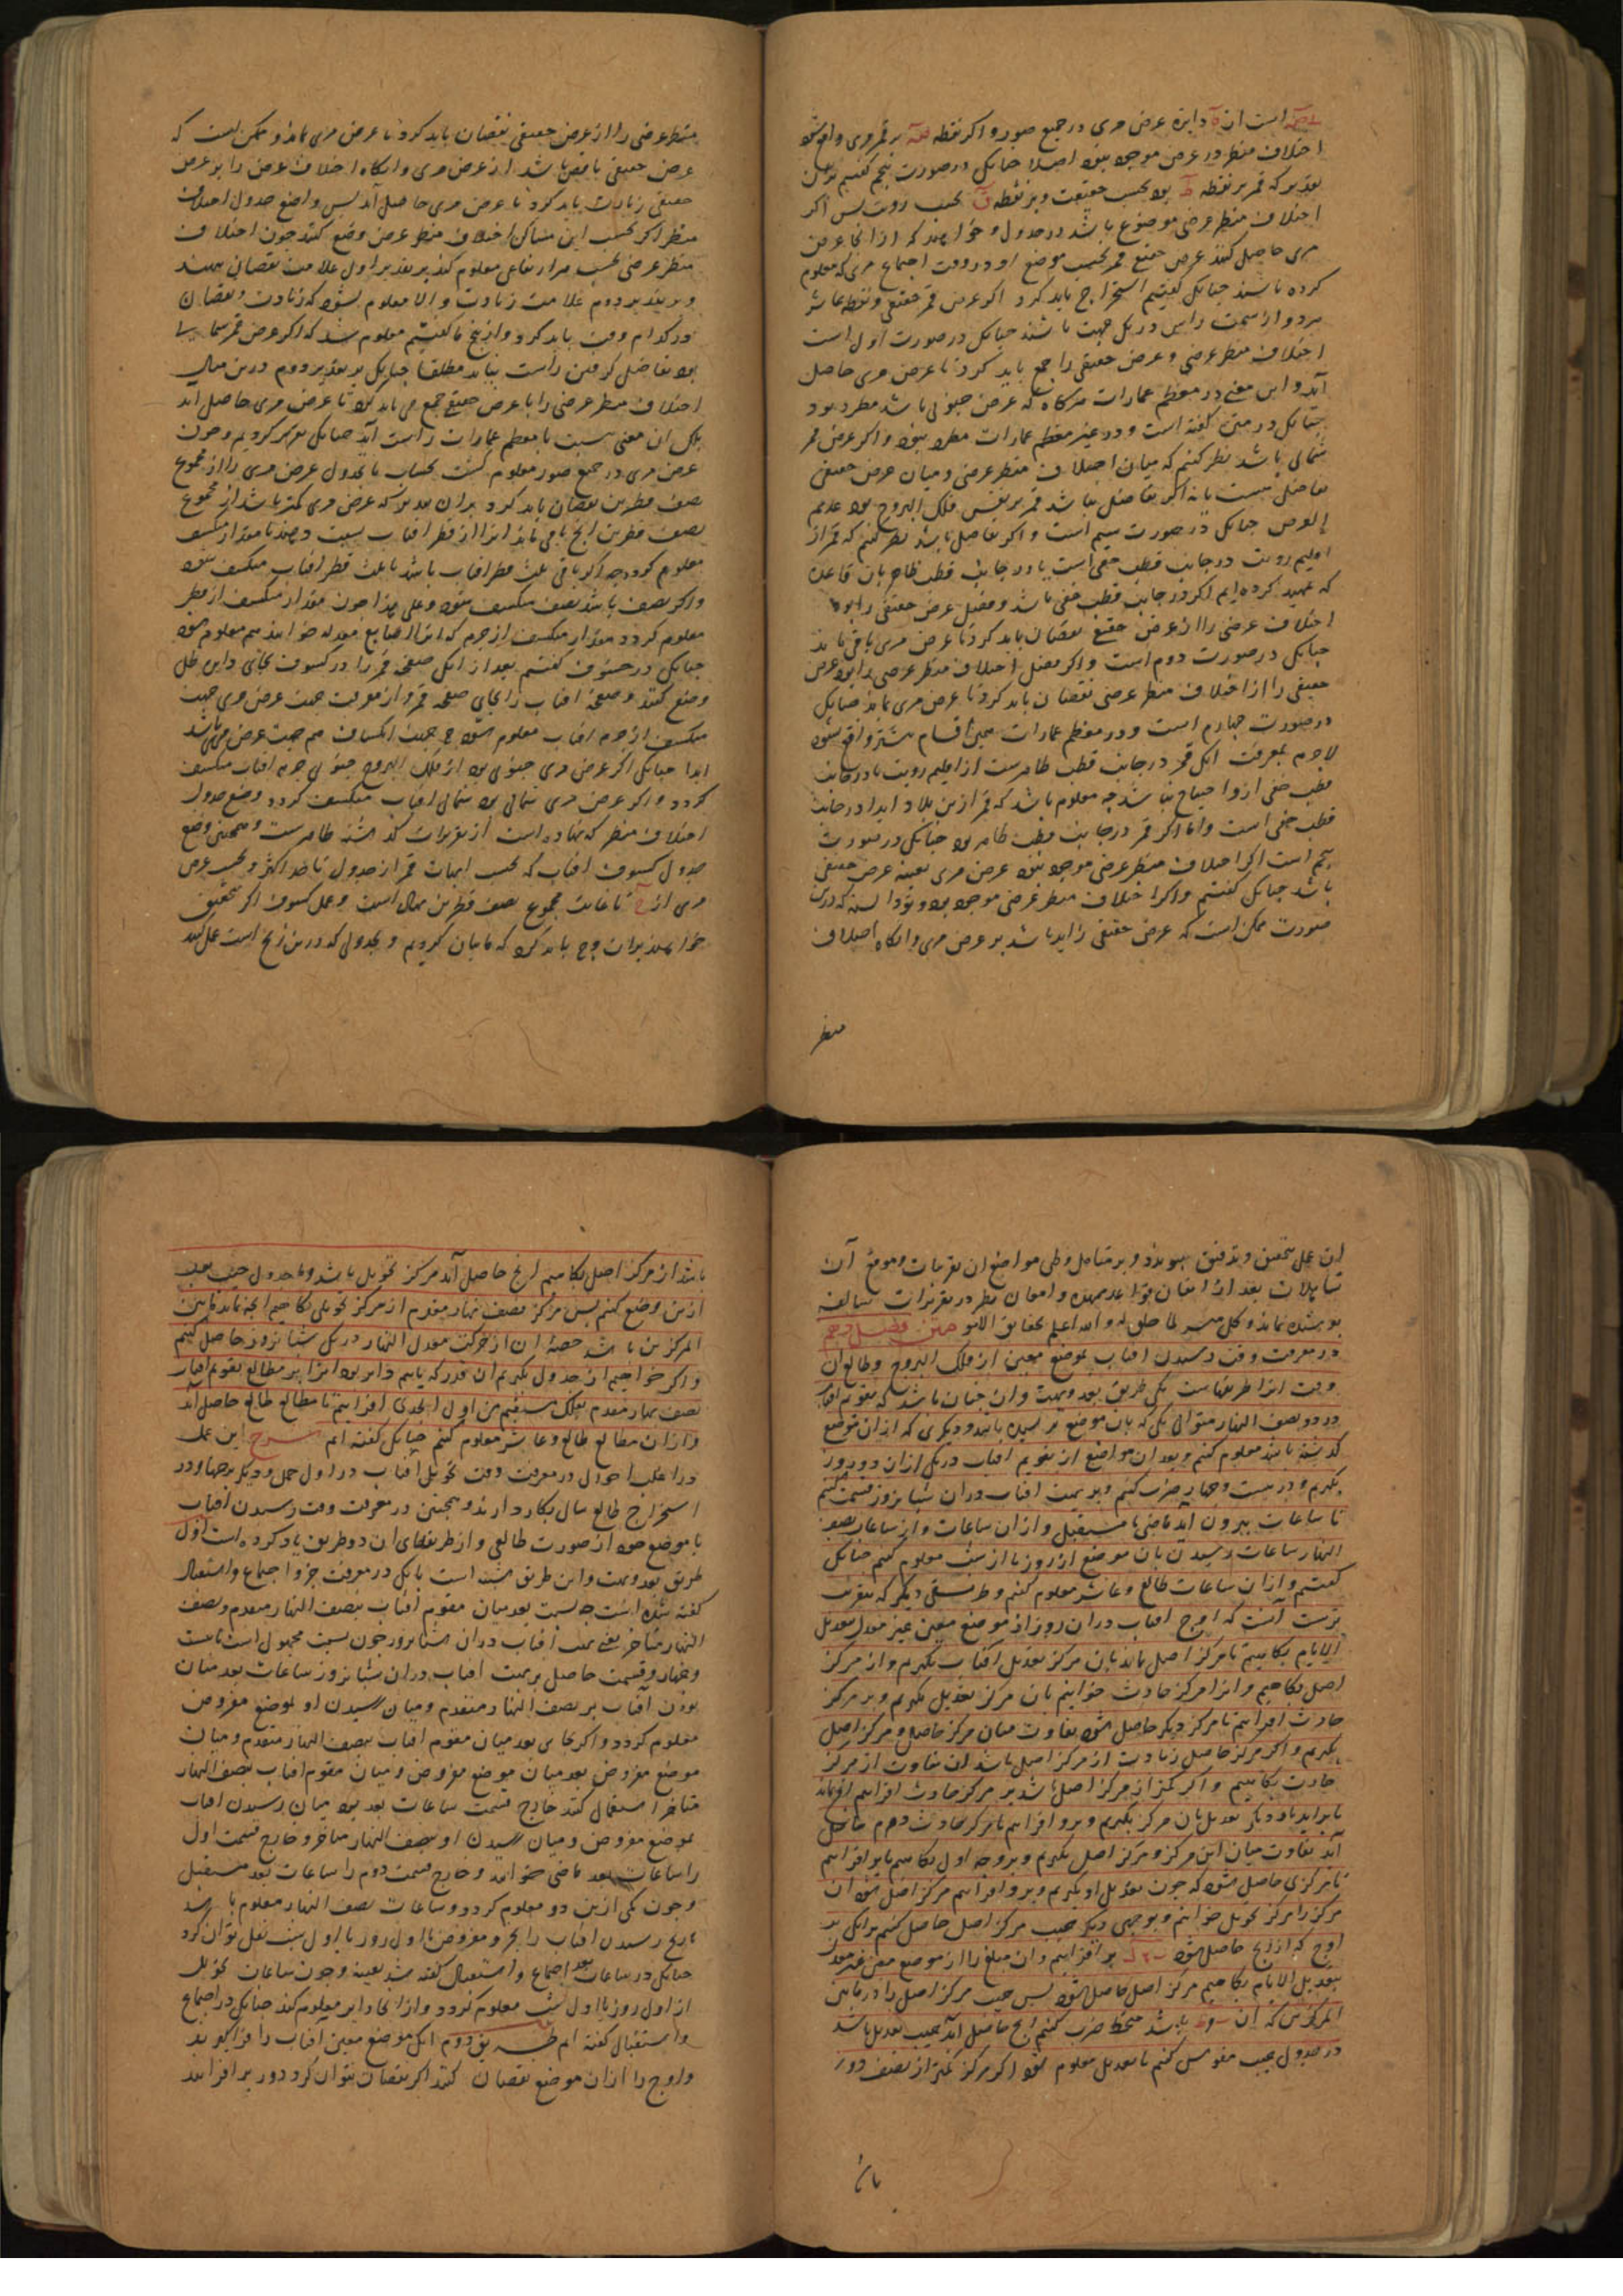 است از دایره عرض مری در جمیع صور و اکر نقطه بر قمر مری واقع شود
اختلاف منظر در عرض موجود نبود اصلا چنانکه در صورت پنجم کفتیم
تقدیر که قمر بر نقطه ط بود بحسب حقیقت و بر نقطه ق بحسب رویت پس اکر
اختلاف منظر عرضی موضوع باشد در جدول و خواهند که از انجا عرض
مری حاصل کنند عرض حقیقی قمر بحسب موضع او در وقت اجتماع مری که معلوم
کرده باشند چنانکه کفتیم استخراج باید کرد اکر عرض قمر حقیقی و نقطه عاشر
هر دو از سمت راس در یک جهت باشند چنانکه در صورت اول است
اختلاف منظر عرضی و عرض حقیقی را جمع باید کرد تا عرض مری حاصل
آید و این معنی در معظم عمارات هرکاه که عرض جنوبی باشد مطرد بود
چنانکه در متن کفته است و در غیر معظم عمارات مطرد نبود و اکر عرض قمر
شمالی باشد نظر کنیم که میان اختلاف منظر عرضی و میان عرض حقیقی
تفاضل هست یا نه اکر تفاضل نباشد قمر بر نفس فلک البروج بود عدیم
العرض چنانکه در صورت سیم است و اکر تفاضل باشد نظر کنیم که قمر از
اقلیم رویت در جانب قطب خفی است یا در جانب قطب ظاهر بان قاعده
که تمهید کرده ایم اکر در جانب قطب خفی باشد و فضل عرض حقیقی را بود
اختلاف عرضی را از عرض حقیقی نقصان باید کرد تا عرض مری باقی ماند
چنانکه در صورت دوم است و اکر فضل اختلاف منظر عرضی را بود عرض
حقیقی را از اختلاف منظر عرضی نقصان باید کرد تا عرض مری بماند چنانکه
در صورت چهارم است و در معظم عمارات همین اقسام بیشتر واقع شود
لاجرم بمعرفت انکه قمر در جانب قطب ظاهرست از اقلیم رویت یا در جانب
قطب خفی ازو احتیاج نباشد چه معلوم باشد که قمر ازین بلاد ابدا در جانب
قطب خفی است و اما اکر قمر در جانب قطب ظاهر بود چنانکه در صورت
پنجم است اکر اختلاف منظر عرضی موجود نبود عرض مری بعینه عرض حقیقی
باشد چنانکه کفتیم و اکر اختلاف منظر عرضی موجود بود و تو دانسته که درین
صورت ممکن است که عرض حقیقی زاید باشد بر عرض مری و انکاه اختلاف
منظر
منظر عرضی را از عرض حقیقی نقصان باید کرد تا عرض مری بماند و ممکن است که
عرض حقیقی ناقص باشد از عرض مری و انکاه اختلاف عرض را بر عرض
حقیقی زیادت باید کرد تا عرض مری حاصل آید پس واضع جدول اختلاف
منظر اکر بحسب این مساکن اختلاف منظر عرضی وضع کند چون اختلاف
منظر عرضی بحسب هر ارتفاعی معلوم کند بر تقدیر اول علامت نقصان نهند
و بر تقدیر دوم علامت زیادت و الا معلوم نشود که زیادت و نقصان
در کدام وقت باید کرد و از انچ ما کفتیم معلوم شد که اکر عرض قمر شمالی
بود تفاضل کرفتن راست نیاید مطلقا چنانکه بر تقدیر دوم درین مثال
اختلاف منظر عرضی را با عرض حقیقی جمع می باید کرد تا عرض مری حاصل اید
بلکه ان معنی نسبت با معظم عمارات راست آید چنانکه تقریر کردیم و چون
عرض مری در جمیع صور معلوم کشت بحساب یا بجدول عرض مری را از مجموع
نصف قطرین نقصان باید کرد بران تقدیر که عرض مری کمتر باشد از مجموع
نصف قطرین انچ باقی ماند انرا از قطر افتاب نسبت دهند تا مقدار منکسف
معلوم کردد چه اکر باقی ثلث قطر افتاب باشد ثلث قطر افتاب منکسف شود
و اکر نصف باشد نصف منکسف شود و علی هذا چون مقدار منکسف از قطر
معلوم کردد مقدار منکسف از جرم که انرا اصابع معدله خوانند هم معلوم شود
چنانکه در خسوف کفتیم بعد از انکه صفحه قمر را در کسوف بجای دایره ظل
وضع کنند و صفحه افتاب را بجای صفحه قمر و از معرفت جهت عرض مری جهت
منکسف از جرم افتاب معلوم شود چه جهت انکساف هم جهت عرض مری باشد
ابدا چنانکه اکر عرض مری جنوبی بود از فلک البروج جنوبی جرم افتاب منکسف
کردد و اکر عرض مری شمالی بود شمالی افتاب منکسف کردد و وضع جدول
اختلاف منظر که نهاده است از تقریرات کذشته ظاهرست و همچنین وضع
جدول کسوف افتاب که بحسب ابهات قمر از جدول تا بعد اکثر و بحسب عرض
مری از تا غایت مجموع نصف قطرین نهاده است و عمل کسوف اکر بتحقیق
خواهند بران وجه باید کرد که ما بیان کردیم و بجدولی که درین زیج است عمل کند
ان عمل بتحقیق و تدقیق نپیوندد و بر متامل وطی مواضع ان تقریبات و موقع آن
تساهلات بعد از اتقان قواعد ممهده و امعان نظر در تقریرات سالفه
پوشیده نماند و کل میسر لما خلق له و الله اعلم بحقایق الامور متن فصل دهم
در معرفت وقت رسیدن افتاب بموضع معین از فلک البروج و طالع ان
وقت انرا طریقهاست یکی طریق بعد و بهت و ان چنان باشد که تقویم افتاب
در دو نصف النهار متوالی یکی که بان موضع نرسیده باشد و دیکری که از ان موضع
کذشته باشد معلوم کنیم و بعد ان مواضع از تقویم افتاب در یکی ازان دو روز
بکیریم و در بیست و چهار ضرب کنیم و بر بهت افتاب دران شبانروز قسمت کنیم
تا ساعات بیرون آید ماضی یا مستقبل و ازان ساعات و از ساعات نصف
النهار ساعات رسیدن بان موضع از روز یا از شب معلوم کنیم چنانکه
کفتیم و ازان ساعات طالع و عاشر معلوم کنیم و طریقی دیکر که بتقریب
ترست آنست که اوج افتاب دران روز از موضع معین غیر معدل بتعدیل
الایام بکاهیم تا مرکز اصل بماند بان مرکز تعدیل افتاب بکیریم و از مرکز
اصل بکاهیم و انرا مرکز حادث خوانیم بان مرکز تعدیل بکیریم و بر مرکز
حادث افزاییم تا مرکز دیکر حاصل شود تفاوت میان مرکز حاصل و مرکز اصل
بکیریم و اکر مرکز حاصل زیادت از مرکز اصل باشد ان تفاوت از مرکز
حادث بکاهیم و اکر کمتر از مرکز اصل باشد بر مرکز حادث افزاییم انچ بماند
یا براید باز دیکر تعدیل بان مرکز بکیریم و برو افزاییم تا مرکز حادث دوم حاصل
آید تفاوت میان این مرکز و مرکز اصل بکیریم و بر وجه اول بکاهیم یا بر افزاییم
تا مرکزی حاصل شود که چون تعدیل او بکیریم و برو افزاییم مرکز اصل شود ان
مرکز را مرکز تحویل خوانیم و بوجهی دیکر جیب مرکز اصل حاصل کنیم بر انکه بر
اوج که از زیج حاصل شود بر افزاییم و ان مبلغ را از موضع معین غیر معدل
بتعدیل الایام بکاهیم مرکز اصل حاصل شود پس جیب مرکز اصل را در مابین
المرکزین که ان باشد منحط ضرب کنیم انچ حاصل آید جیب تعدیل باشد
در جدول جیب مقوس کنیم تا تعدیل معلوم شود اکر مرکز کمتر از نصف دور
باشد از مرکز اصل بکاهیم انچ حاصل آید مرکز تحویل باشد و جدول جیب
ازین وضع کنیم پس مرکز نصف نهار مقدم از مرکز تحویل بکاهیم انچه بماند مابین
المرکزین باشد حصه ان از حرکت معدل النهار در یک شبانروز حاصل کنیم
و اکر خواهیم از جدول بکیریم ان قدر که یابیم دایر بود انرا بر مطالع تقویم افتاب
نصف نهار مقدم بفلک مستقیم من اول الجدی افزاییم تا مطالع طالع حاصل آید
و ازان مطالع طالع و عاشر معلوم کنیم چنانکه کفته ایم شرح این عمل
در اغلب احوال در معرفت وقت تحویل آفتاب در اول حمل و دیکر برجها و در
استخراج طالع سال بکار دارند و همچنین در معرفت وقت رسیدن افتاب
با موضع خود از صورت طالعی و از طریقهای ان دو طریق یاد کرده است اول
طریق بعد و بهت و این طریق مبنی است بانکه در معرفت جزو اجتماع و استقبال
کفته شده است چه نسبت بعد میان مقوم آفتاب بنصف النهار متقدم و نصف
النهار متاخر یعنی بهت آفتاب دران شبانروز چون نسبت مجهول است تا بیست
و چهار و قسمت حاصل بر بهت افتاب دران شبانروز ساعات بعد میان
بودن آفتاب بر نصف النهار متقدم و میان رسیدن او بموضع مفروض
معلوم کردد و اکر بجای بعد میان مقوم افتاب بنصف النهار متقدم و میان
موضع مفروض بعد میان موضع مفروض و میان مقوم افتاب بنصف النهار
متاخر استعمال کند خارج قسمت ساعات بعد بود میان رسیدن افتاب
بموضع مفروض و میان رسیدن او بنصف النهار متاخر و خارج قسمت اول
را ساعات بعد ماضی خوانند و خارج قسمت دوم را ساعات بعد مستقبل
و چون یکی ازین دو معلوم کردد و ساعات نصف النهار معلوم باشد
تاریخ رسیدن افتاب را بجزو مفروض با اول روز یا اول شب نقل توان کرد
چنانکه در ساعات بعد اجتماع و استقبال کفته شد بعینه و چون ساعات تحویل
از اول روز یا اول شب معلوم کردد و ازانجا دایر معلوم کند چنانکه در اجتماع
و استقبال کفته ایم طریق دوم انکه موضع معین آفتاب را فراکیرند
و اوج را ازان موضع نقصان کنند اکر نقصان نتوان کرد دور بر افزایند